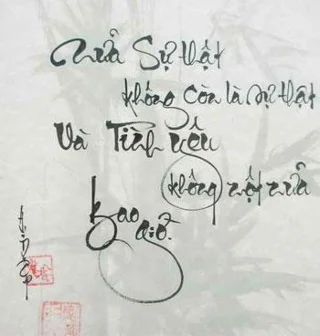 Nửa Sự thật
không còn là sự thật
Và Tình yêu
không một nửa
bao giờ.